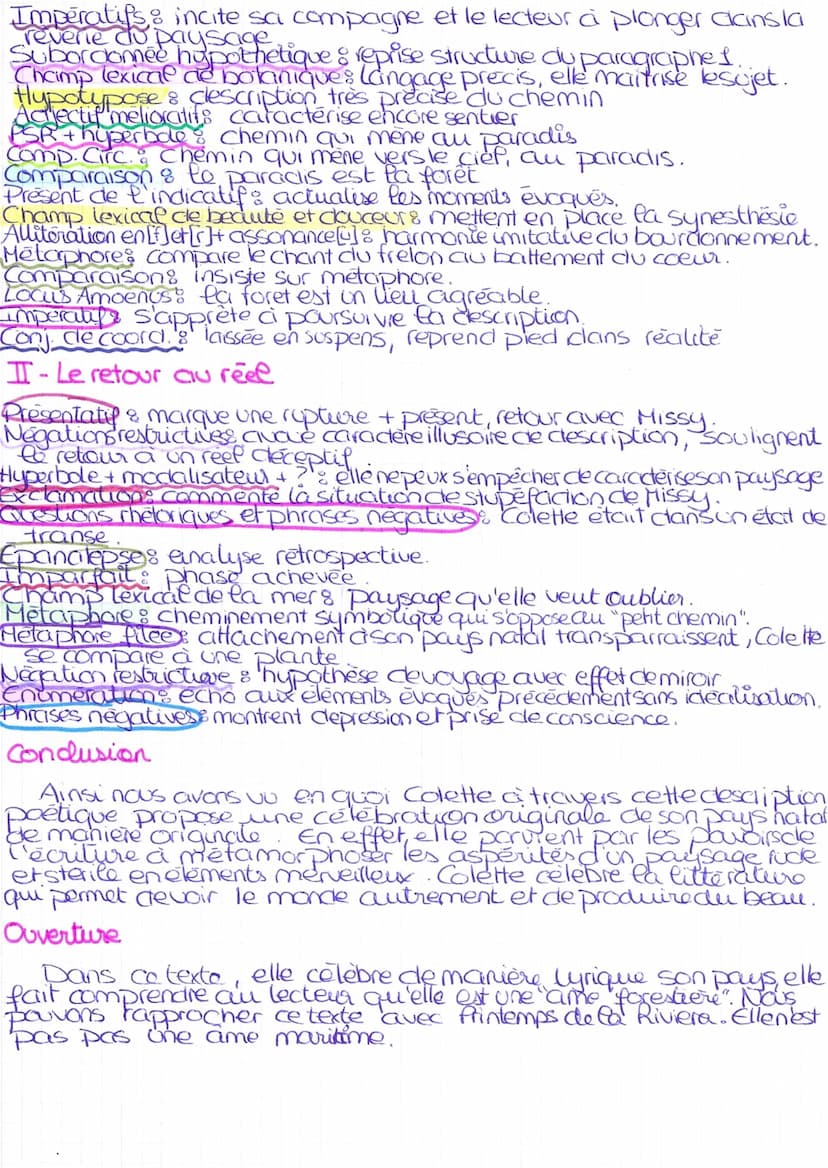 Impératifs : incite sa compagne et le lecteur à plonger dans la
rêverie du paysage
Subordonnée hypothétique : reprise structure du paragraphe 1.
Champ lexical de botanique : Langage précis, elle maîtrise le sujet.
Hypotypose : description très précise du chemin
Adjectif mélioratif : caractérise encore sentier
PSR + hyperbole : chemin qui mène au paradis
Comp. Circ : Chemin qui mène vers le ciel, au paradis.
Comparaison : le paradis est la forêt
Présent de l'indicatif : actualise les moments évoqués.
Champ lexical de beauté et douceur : mettent en place la synesthésie
Allitération en [f] et [r] + assonance [u] : harmonie imitative du bourdonnement.
Métaphore : compare le chant du frelon au battement du coeur.
Comparaison : insiste sur métaphore.
Locus Amoenus : la foret est un lieu agréable.
Impératif : s'apprête à poursuivre la description.
Conj. de coord. : laissée en suspens, reprend pied dans réalité
II - Le retour au réel
Présentatif : marque une rupture + présent, retour avec Missy.
Négations restrictives : avoue caractère illusoire de description, soulignent
le retour à un réel déceptif
Hyperbole + modalisateur + ? : elle ne peux s'empêcher de caractériser son paysage
Exclamation : commente la situation de stupéfaction de Missy.
Questions rhétoriques et phrases négatives : Colette était dans un état de
transe.
Epanalepse : analyse rétrospective.
Imparfait : phase achevée.
Champ lexical de la mer : paysage qu'elle veut oublier.
Métaphore : cheminement symbolique qui s'oppose au "petit chemin".
Métaphore filée : attachement à son pays natal transparraissent, Colette
se compare à une plante.
Négation restrictive : hypothèse de voyage avec effet de miroir
Enumération : écho aux éléments évoqués précédement sans idéalisation.
Phrases négatives : montrent depression et prise de conscience.
Conclusion
Ainsi nous avons vu en quoi Colette à travers cette description
poétique propose une célébration originale de son pays natal
de manière originale. En effet, elle parvient par les pouvoirs de
l'écriture à métamorphoser les aspérités d'un paysage rude
et stérile en éléments merveilleux. Colette célèbre la littérature
qui permet de voir le monde autrement et de produire du beau.
Ouverture
Dans ce texte, elle célèbre de manière lyrique son pays, elle
fait comprendre au lecteur qu'elle est une "âme forestière". Nous
pavons rapprocher ce texte avec Printemps de la Riviera. Elle n'est
pas pas une âme maritime.